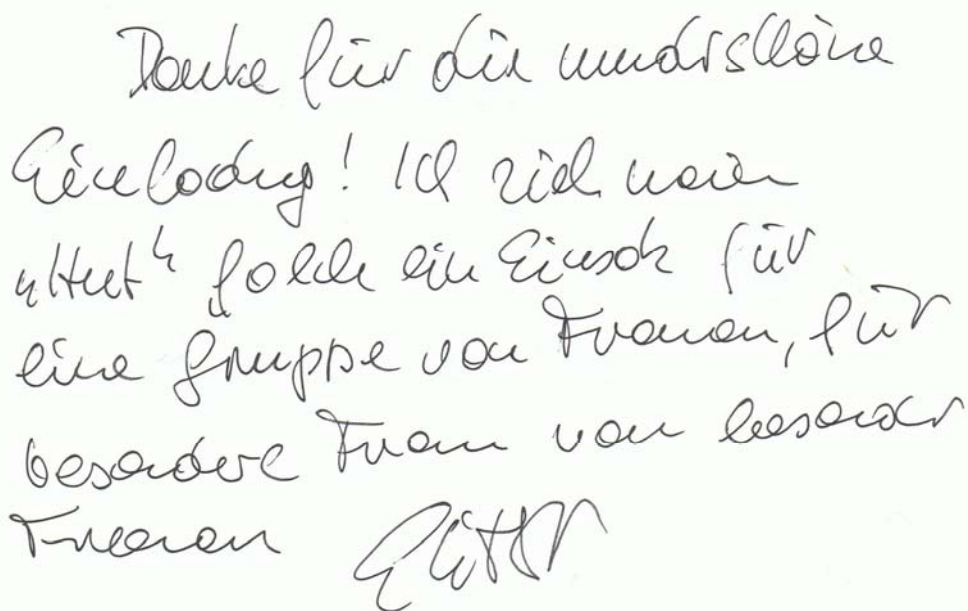 Danke für die wunderschöne
Einladung! Ich zieh meinen
"Hut" solch ein Einsatz für
eine Gruppe von Frauen, für
besondere Frauen von besonderen
Frauen